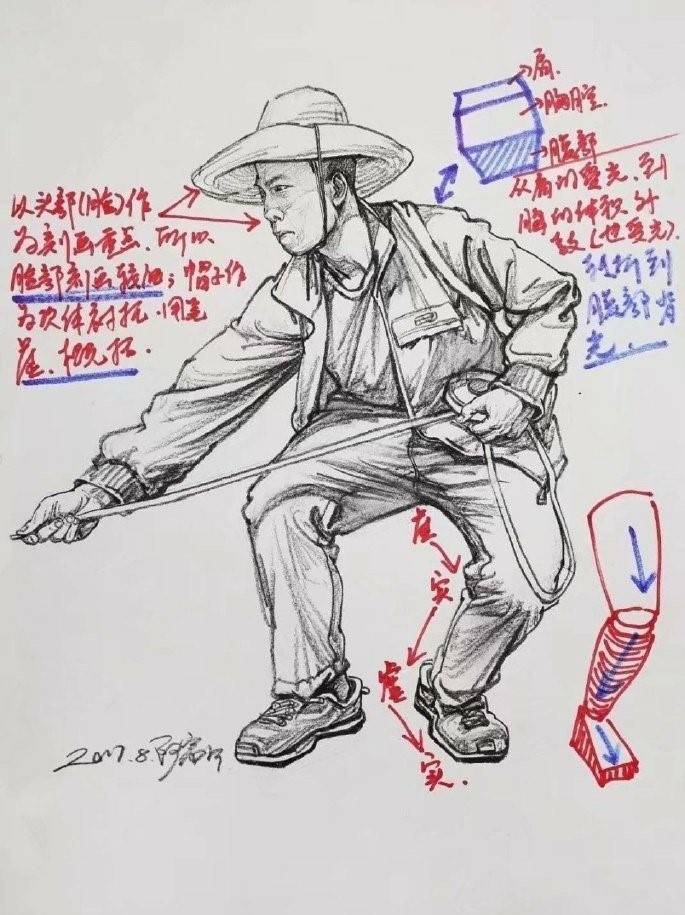 以头部(脸)作
为刻画重点.所以
脸部刻画较细;帽子作
为次体衬托.用笔
虚.概括.
→肩.
→胸腔.
→腹部
从肩的受光.到
胸的体积
(也受光).
转折到
腹部背
光.
虚
实
虚
实.
2017.8.